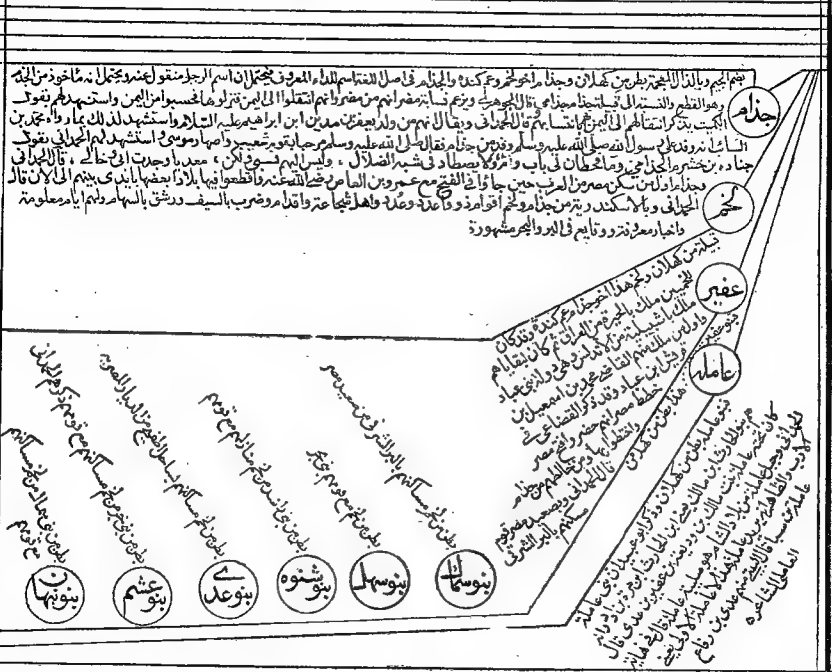 بضم الجيم وبالذال المعجمة بطن من كهلان وجذام اخو لخم وعم كنده والجذام فى اصل اللغة اسم للداء المعروف يحتمل ان اسم الرجل منقول عنه ويحتمل انه مأخوذ من الجذم
وهو القطع والنسبة الى قبيلة جذام جذامى قال الجوهرى ويزعم نسابة مضر انهم من مضر وانهم انتقلوا الى اليمن فنزلوها فحسبوا من اليمن واستشهد لهم بقول
الكميت يذكر انتقالهم الى اليمن بانتسابهم وقال الحمدانى ويقال انهم من ولد يعفر بن مدين ابن ابراهيم عليه السلام واستشهد لذلك بما رواه محمد بن
السائب انه وفد على رسول الله صلى الله عليه وسلم وفد من جذام فقال صلى الله عليه وسلم مرحبا بقوم شعيب واصهار موسى واستشهد لهم الحمدانى بقول
جناده بن خشرم الجذامى وما قحطان لى باب وام ولا تصطاد فى شبه الضلال وليس اليهم نسبى ولكن معديا وجدت ابى وخالى قال الحمدانى
وجذام اول من سكن مصر من العرب حين جاؤا فى الفتح مع عمرو بن العاص رضى الله عنه واقطعوا فيها بلادا بعضها بايدى بنيهم الى الآن قال
الحمدانى وبالاسكندرية من جذام ولخم اقوام ذو وعدد وعدد واهل شجاعة واقدام وضرب بالسيف ورشق بالسهام ولهم ايام معلومة
واخبار معروفة ووقايع فى البر والبحر مشهورة
جذام
لخم
قبيلة من كهلان ولخم هذا اخو جذام وعم كندة وقد كان
للخميين ملك بالحيرة من العراق ثم كان لبقاياهم
ملك باشبيلية من الاندلس وهى دولة بنى عباد
واول من ملك منهم القاضى محمد بن اسمعيل بن
قريش ابن عباد وقد ذكر القضاعى فى
خطط مصر انهم حضروا فتح مصر
واختطوا بها ومن خالطهم من جذام
قال الحمدانى وبصعيد مصر قوم
مسكنهم بالبر الشرقى
عفير
بنو عفير
هذا بطن من كهلان
عاملة
بنو عاملة بطن من كهلان وذكر ابو عبيد ان بنى عاملة
هم بنو الحارث بن مالك يعنى ابن الحارث ابن مرة بن ادد وانه
كان تحته عاملة بنت مالك بن وديعة بن عفير بن عدى قال
الحمدانى وبجبل عاملة من بلاد الشام
عاملة بن سبا قال
العاملى الشاعر
بنو سماك
بطن من لخم مساكنهم بالبر الشرقى من صعيد مصر
بنو سهل
بطن من لخم مع قومهم بنى بحر
بنو شنوه
بطن من بنى اسد من لخم منازلهم مع قومهم
بنو عدى
بطن من لخم مساكنهم بساحل اطفيح من الديار المصرية
بنو عشم
بطن من بنى بحر من لخم مساكنهم مع قومهم ذكرهم الحمدانى
بنو نبهان
بطن من بنى سماك من لخم مساكنهم
مع قومهم